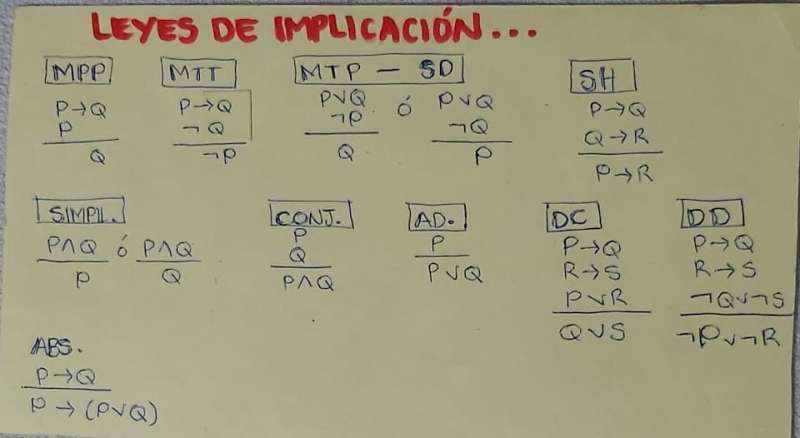 LEYES DE IMPLICACIÓN...
MPP
P→Q
P
Q
MTT
P→Q
¬Q
¬P
MTP — SD
P∨Q
¬P
Q
ó
P∨Q
¬Q
P
SH
P→Q
Q→R
P→R
SIMPL.
P∧Q
P
ó
P∧Q
Q
CONJ.
P
Q
P∧Q
AD.
P
P∨Q
DC
P→Q
R→S
P∨R
Q∨S
DD
P→Q
R→S
¬Q∨¬S
¬P∨¬R
ABS.
P→Q
P→(P∨Q)